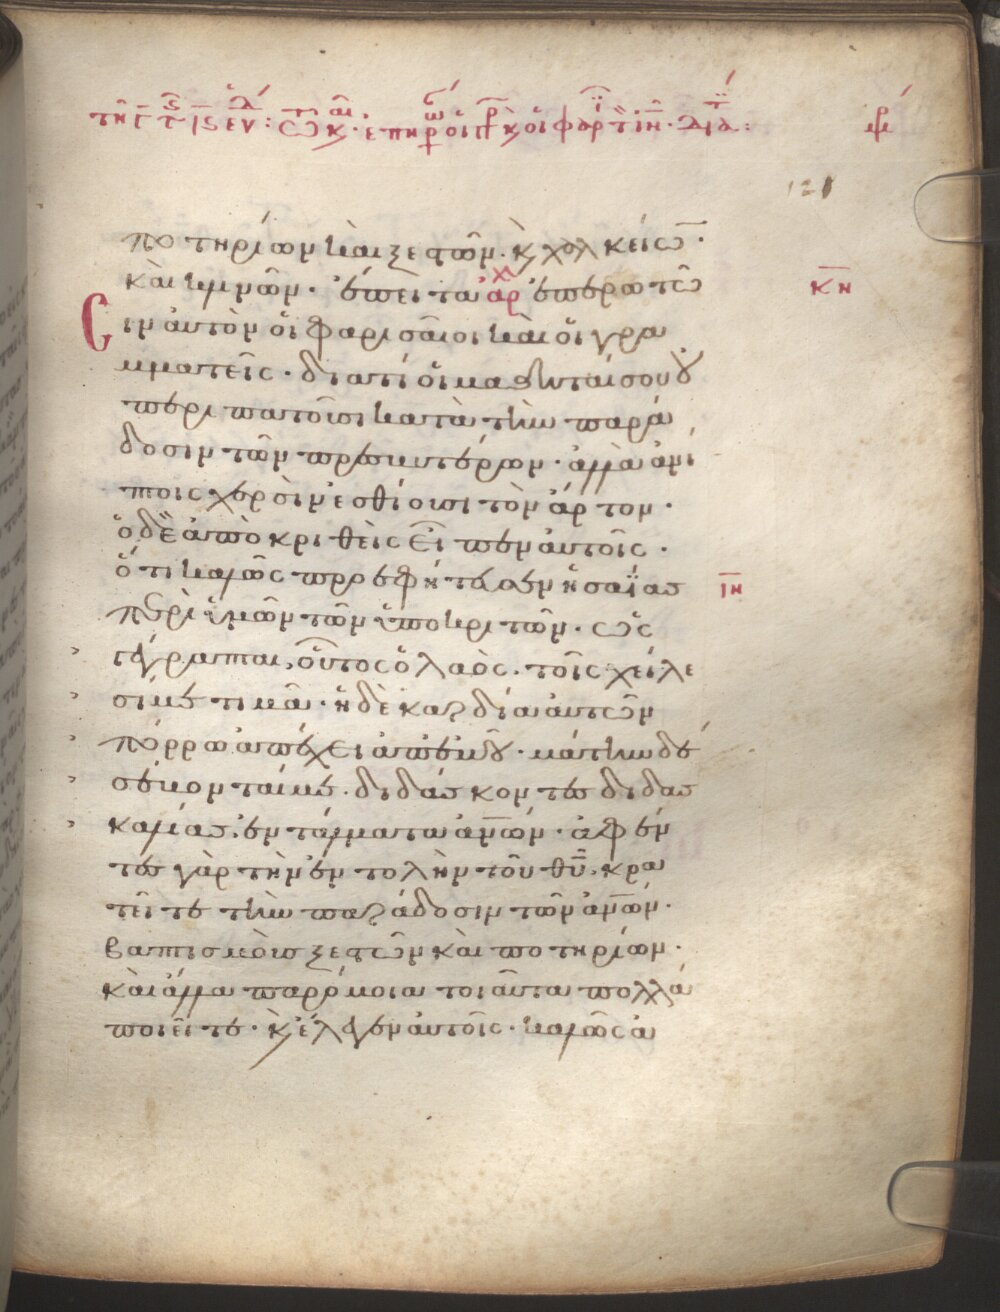 ποτηρίων καὶ ξεστῶν. κ χαλκείω̅.
καὶ κλινῶν. ἔπειτα ἐπερωτῶ
κη
σιν αὐτὸν οἱ φαρισαῖοι καὶ οἱ γρα
μματεῖς. διατί οἱ μαθηταί σου οὐ
περιπατοῦσι κατὰ τὴν παρά
δοσιν τῶν πρεσβυτέρων. ἀλλὰ ἀνί
πτοις χερσὶν ἐσθίουσι τὸν ἄρτον.
ὁ δὲ ἀποκριθεὶς εἶπεν αὐτοῖς.
ὅτι καλῶς προεφήτευσεν ἡσαΐας
περὶ ὑμῶν τῶν ὑποκριτῶν. ὡς
γέγραπται, οὗτος ὁ λαὸς. τοῖς χείλε
σί με τιμᾶ. ἡ δὲ καρδία αὐτῶν
πόρρω ἀπέχει ἀπ' ἐμοῦ. μάτην δὲ
σέβονταί με. διδάσκοντες διδασ
καλίας, ἐντάλματα ἀν̅ων. ἀφέν
τες γὰρ τὴν ἐντολὴν τοῦ θ̅υ, κρα
τεῖτε τὴν παράδοσιν τῶν ἀν̅ων.
βαπτισμοὺς ξεστῶν καὶ ποτηρίων.
καὶ ἄλλα παρόμοια τοιαῦτα πολλά
ποιεῖτε. κ ἔλεγεν αὐτοῖς. καλῶς ἀ